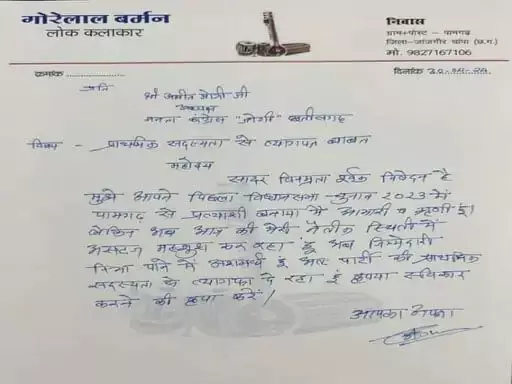 गोरेलाल बर्मन
लोक कलाकार
निवास
ग्राम+पोस्ट - पामगढ़
जिला-जांजगीर चांपा (छ.ग.)
मो. 9827167106
क्रमांक ..................
दिनांक
प्रति
श्री अमीत जोगी जी
अध्यक्ष
जनता कांग्रेस "जोगी" छत्तीसगढ़
विषय - प्राथमिक सदस्यता से त्यागपत्र बाबत
महोदय
सादर विनम्रता पूर्वक निवेदन है
मुझे आपने पिछला विधानसभा चुनाव 2023 में
पामगढ़ से प्रत्याशी बनाया मैं आभारी व ऋणी हूं।
लेकिन अब आज की मेरी नैतीक स्थिती में
असहज महसुस कर रहा हूं अब जिम्मेदारी
निभा पाने में असमर्थ हूं अतः पार्टी की प्राथमिक
सदस्यता से त्यागपत्र दे रहा हूं कृपया स्वीकार
करने की कृपा करें।
आपका अपना